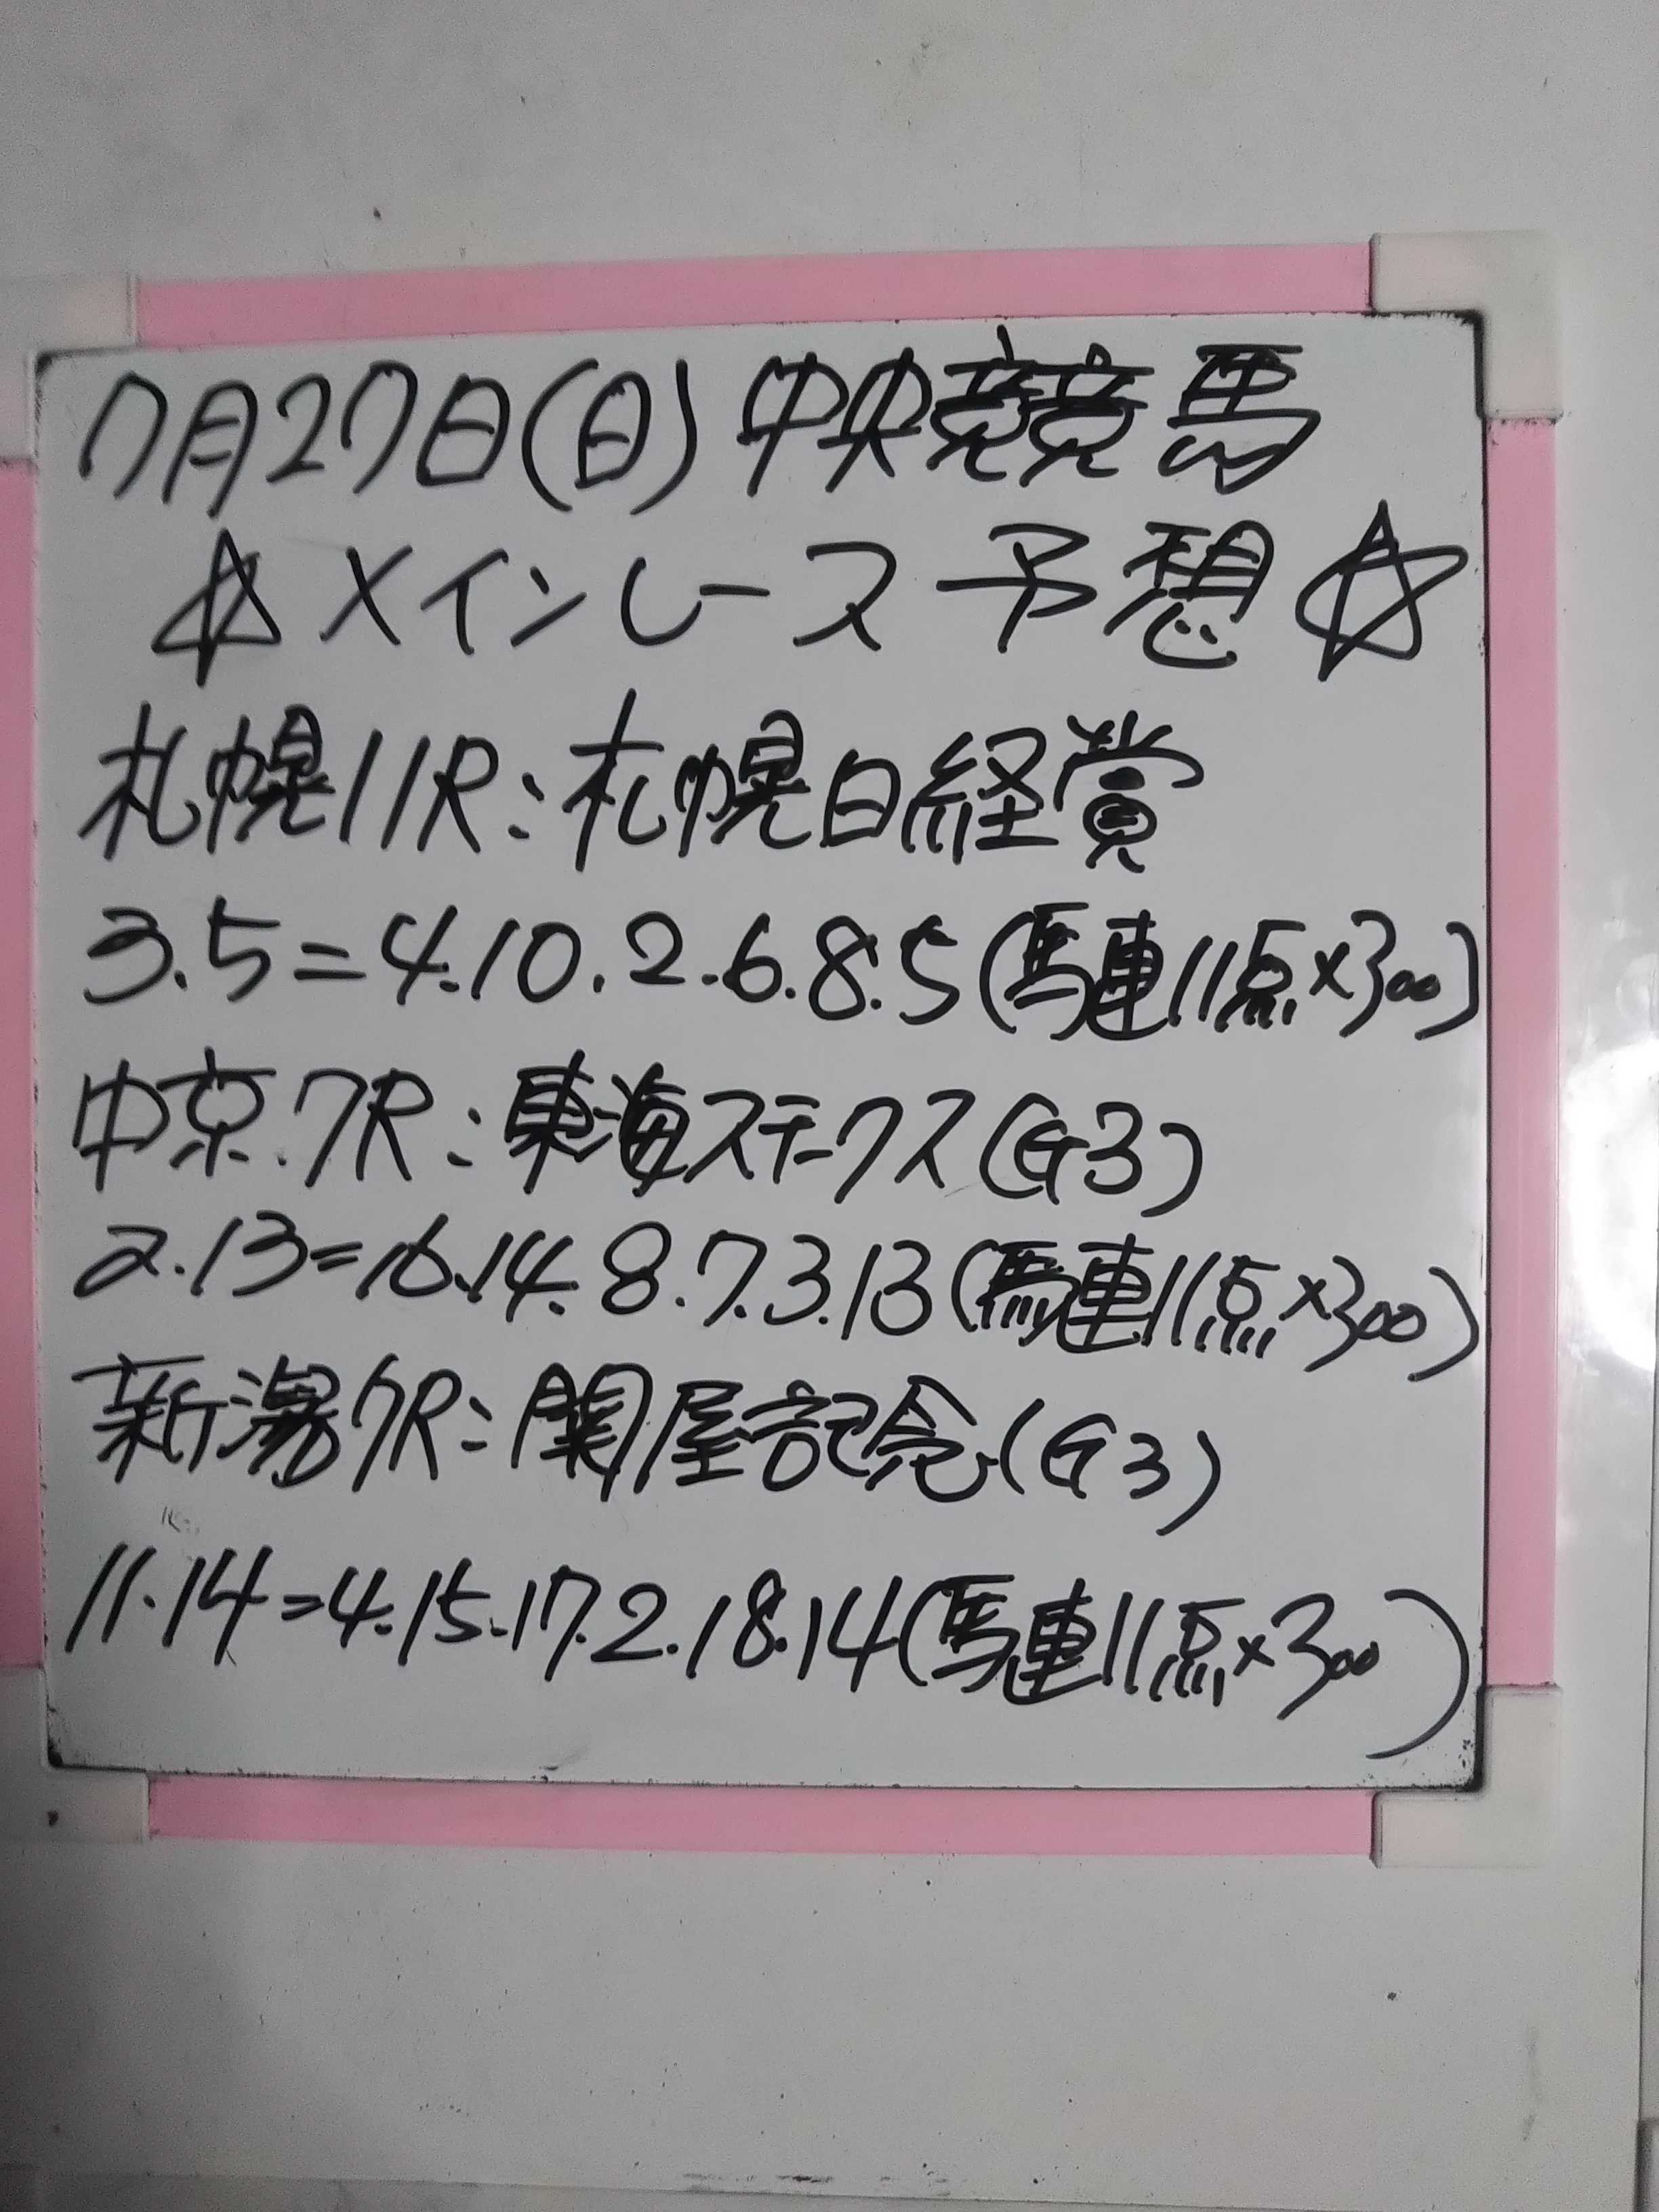 7月27日(日)中央競馬
☆メインレース予想☆
札幌11R:札幌日経賞
3.5=4.10.2.6.8.5(馬連11点×300)
中京7R:東海ステークス(G3)
2.13=16.14.8.7.3.13(馬連11点×300)
新潟7R:関屋記念(G3)
11.14=4.15.17.2.18.14(馬連11点×300)